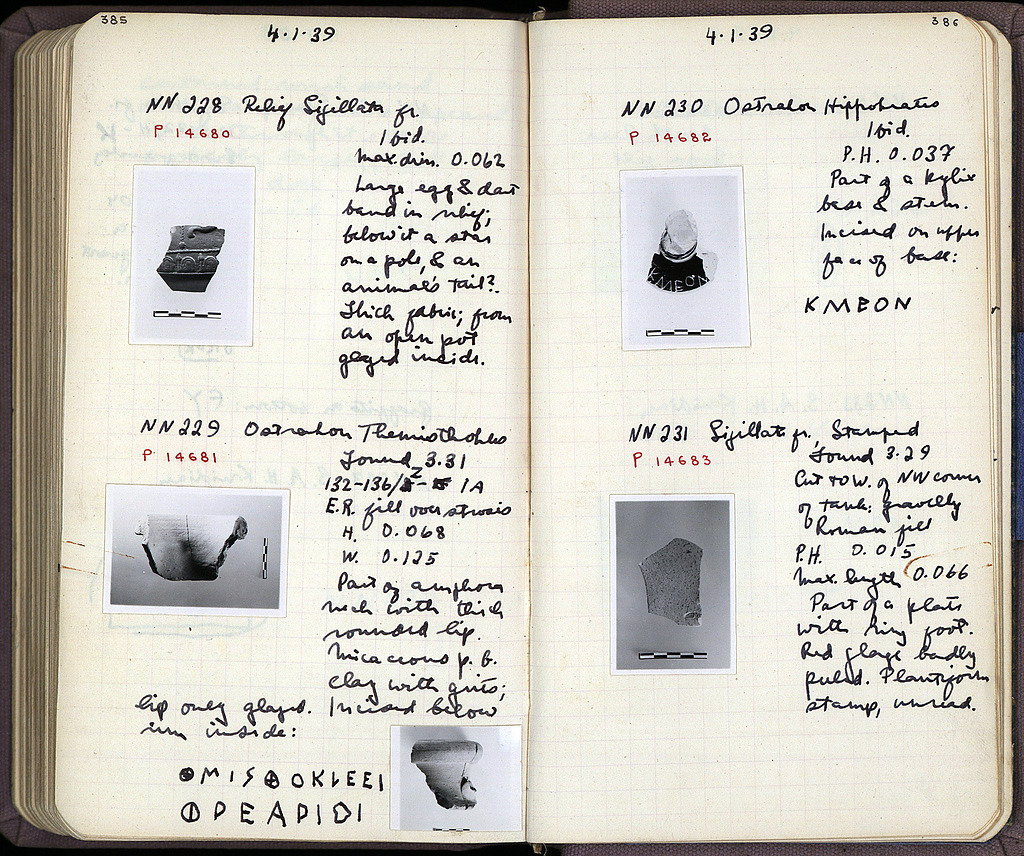 385
4·1·39
NN 228 Relief Sigillata fr.
P 14680
Ibid.
Max. dim. 0.062
Large egg & dart
band in relief;
below it a star
on a pole, & an
animal's tail?.
Thick fabric; from
an open pot
glazed inside.
NN 229 Ostrakon Themisthokles
P 14681
Found 3.31
132-136/ 1A
E.R. fill over stereo
H. 0.068
W. 0.125
Part of amphora
neck with thick
rounded lip.
Micaceous p. b.
clay with grits;
lip only glazed. Incised below
rim inside:
ΘΜΙSΘΟΚLEEI
ΦΡΕΑΡΙΟΙ
386
4·1·39
NN 230 Ostrakon Hippokrates
P 14682
Ibid.
P.H. 0.037
Part of a kylix
base & stem.
Incised on upper
face of base:
KMEON
KMEON
NN 231 Sigillata fr., Stamped
P 14683
Found 3.29
Cut to W. of NW corner
of tank; gravelly
Roman fill
P.H. 0.015
Max. length 0.066
Part of a plate
with ring foot.
Red glaze badly
peeled. Plantiform
stamp, unread.